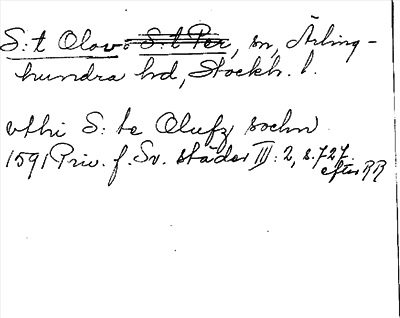 S:t Olov = S:t Per, sn, Ärling-
hundra hd, Stockh. l.
vthi S: te Olufz sochn
1591 Priv. f. Sv. städer III: 2, s. 727.
efter RR